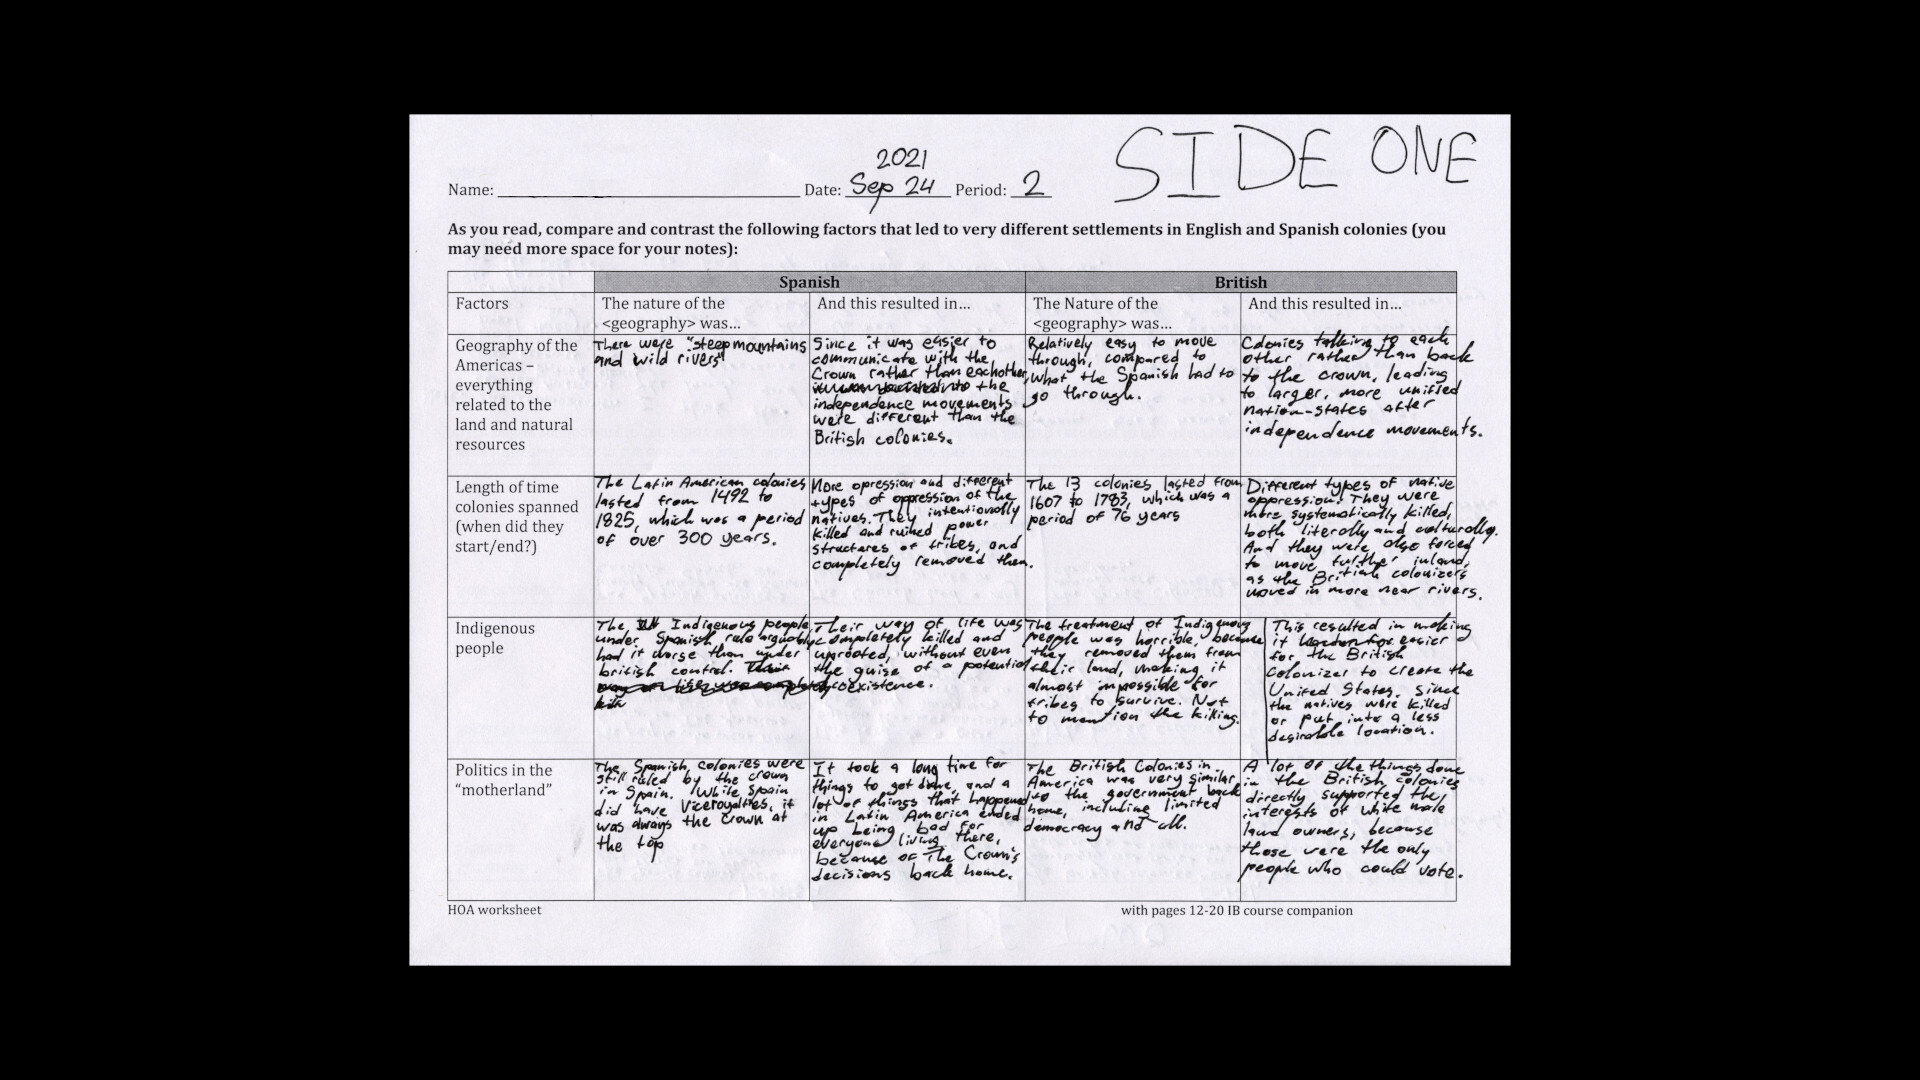 SIDE ONE
2021
Name: Date: Sep 24 Period: 2
As you read, compare and contrast the following factors that led to very different settlements in English and Spanish colonies (you
may need more space for your notes):
Spanish
British
Factors
The nature of the
<geography> was...
And this resulted in...
The Nature of the
<geography> was...
And this resulted in...
Geography of the
Americas –
everything
related to the
land and natural
resources
There were "steep mountains
and wild rivers"
Since it was easier to
communicate with the
Crown rather than eachother,
the
independence movements
were different than the
British colonies.
Relatively easy to move
through, compared to
what the Spanish had to
go through.
Colonies talking to each
other rather than back
to the crown, leading
to larger, more unified
nation-states after
independence movements.
Length of time
colonies spanned
(when did they
start/end?)
The Latin American colonies
lasted from 1492 to
1825, which was a period
of over 300 years.
More opression and different
types of oppression of the
natives. They intentionally
killed and ruined power
structures of tribes, and
completely removed them.
The 13 colonies lasted from
1607 to 1783, which was a
period of 76 years
Different types of native
oppression. They were
more systematically killed,
both literally and culturally.
And they were also forced
to move further inland,
as the British colonizers
moved in more near rivers.
Indigenous
people
The Indigenous people
under Spanish rule arguably
had it worse than under
british control. Their
way of life was completely
Their way of life was
completely killed and
uprooted, without even
the guise of a potential
coexistence.
The treatment of Indigenous
people was horrible, because
they removed them from
their land, making it
almost impossible for
tribes to survive. Not
to mention the killing.
This resulted in making
it easier
for the British
Colonizer to create the
United States, since
the natives were killed
or put into a less
desirable location.
Politics in the
"motherland"
The Spanish colonies were
still ruled by the crown
in Spain. While Spain
did have Viceroyalties, it
was always the Crown at
the top
It took a long time for
things to get done, and a
lot of things that happened
in Latin America ended
up being bad for
everyone living there,
because of The Crown's
decisions back home.
The British Colonies in
America was very similar
to the government back
home, including limited
democracy and all.
A lot of the things done
in the British colonies
directly supported the
interests of white male
land owners, because
those were the only
people who could vote.
HOA worksheet
with pages 12-20 IB course companion